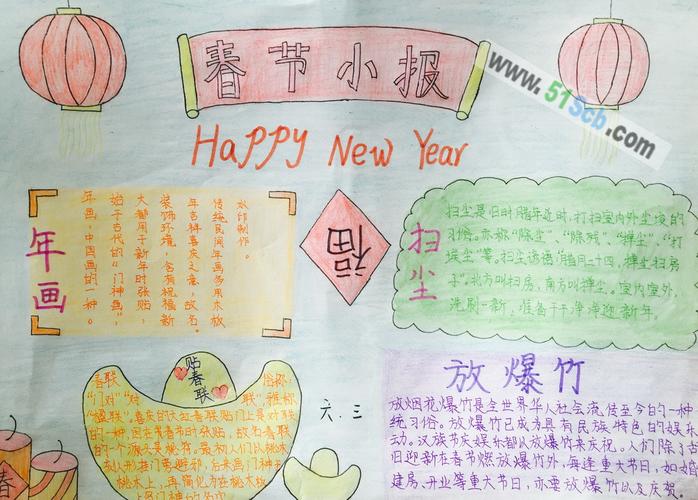 春节小报
www.51Scb.com
HaPPY New Year
年画
年画,中国画的一种。
始于古代的"门神画"
大都用于新年时张贴,
装饰环境,含有祝福新
年吉祥喜庆之意,故名。
传统民间年画多用木板
水印制作。
福
扫尘
扫尘是旧时腊年近时,打扫室内外尘埃的
习俗。亦称"除尘"、"除残"、"掸尘"、"打
埃尘"等。扫尘遗语"腊月二十四,掸尘扫房
子",北方叫扫房,南方叫掸尘。室内室外,
洗刷一新,准备干干净净迎新年。
贴春联
春联 俗称
"门对""对联",雅称
"楹联",喜庆的
的一种,因在
的一个源头是桃符。最初人们以桃木
刻人形挂门旁避邪,后来画门神
桃木上,再简化为在桃木板
上
六.三
放爆竹
放烟花爆竹是全世界华人社会流传至今日的一种
统习俗。放爆竹已成为具有民族特色的娱乐
动。汉族节庆娱乐都以放爆竹来庆祝。人们除了古
旧迎新在春节燃放爆竹外,每逢重大节日,如婚
建房、开业等重大节日,亦要放爆竹以及庆贺
春